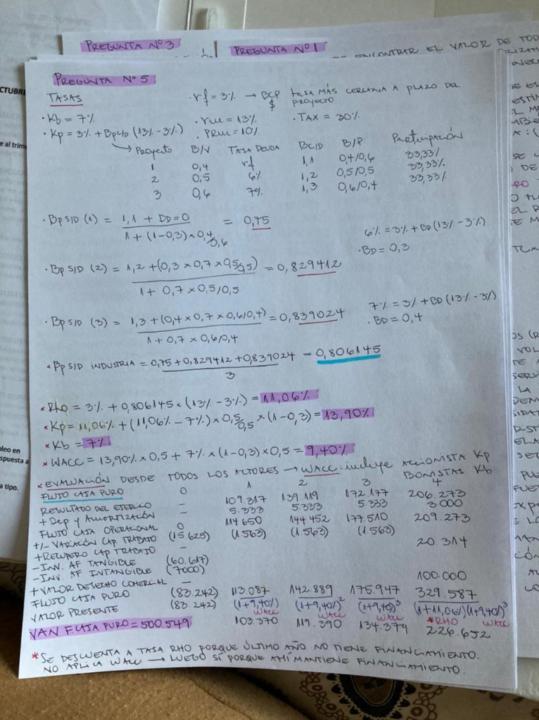 PREGUNTA Nº3
PREGUNTA Nº1
ENCONTRAR EL VALOR DE TOD
PREGUNTA Nº5
TASAS
rf = 3% → BCP $ tasa más cercana a plazo del proyecto
· Kb = 7%
· rm = 13%
· TAX = 30%
· Kp = 3% + Bps/d (13% - 3%)
· PRM = 10%
→ Proyecto B/V Tasa Deuda BC/D B/P Participación
1 0,4 rf 1,1 0,4/0,6 33,33%
2 0,5 6% 1,2 0,5/0,5 33,33%
3 0,6 7% 1,3 0,6/0,4 33,33%
· Bp S/D (1) = 1,1 + BD=0 = 0,75
1 + (1-0,3) × 0,4/0,6
6% = 3% + BD (13% - 3%)
· BD = 0,3
· Bp S/D (2) = 1,2 + (0,3 × 0,7 × 0,5/0,5) = 0,829412
1 + 0,7 × 0,5/0,5
7% = 3% + BD (13% - 3%)
· BD = 0,4
· Bp S/D (3) = 1,3 + (0,4 × 0,7 × 0,6/0,4) = 0,839024
1 + 0,7 × 0,6/0,4
· Bp S/D INDUSTRIA = 0,75 + 0,829412 + 0,839024 = 0,806145
3
* Rho = 3% + 0,806145 × (13% - 3%) = 11,06%
* Kp = 11,06% + (11,06% - 7%) × 0,5/0,5 × (1-0,3) = 13,90%
* Kb = 7%
* WACC = 13,90% × 0,5 + 7% × (1-0,3) × 0,5 = 9,40%
* EVALUACIÓN DESDE TODOS LOS ACTORES → WACC: incluye ACCIONISTA Kp
BONISTAS Kb
FLUJO CAJA PURO 0 1 2 3 4
RESULTADO DEL EJERCICIO 109.317 139.119 172.177 206.273
+ Dep y Amortización – 5.333 5.333 5.333 3.000
FLUJO CAJA OPERACIONAL 0 114.650 144.452 177.510 209.273
+/- VARIACIÓN CAP TRABAJO (15.625) (1.563) (1.563) (1.563)
+ RECUPERO CAP TRABAJO – 20.314
- INV. AF TANGIBLE (60.617)
- INV AF INTANGIBLE (7000)
+ VALOR DESECHO COMERCIAL – 100.000
FLUJO CAJA PURO (83.242) 113.087 142.889 175.947 329.587
VALOR PRESENTE (83.242) (1+9,40%) (1+9,40%)² (1+9,40%)³ (1+11,06%)(1+9,40%)³
WACC WACC WACC *RHO WACC
VAN FLUJO PURO = 500.549 103.370 119.390 134.379 226.652
* SE DESCUENTA A TASA RHO PORQUE ÚLTIMO AÑO NO TIENE FINANCIAMIENTO.
NO APLICA WACC → LUEGO SÍ PORQUE AHÍ MANTIENE FINANCIAMIENTO.